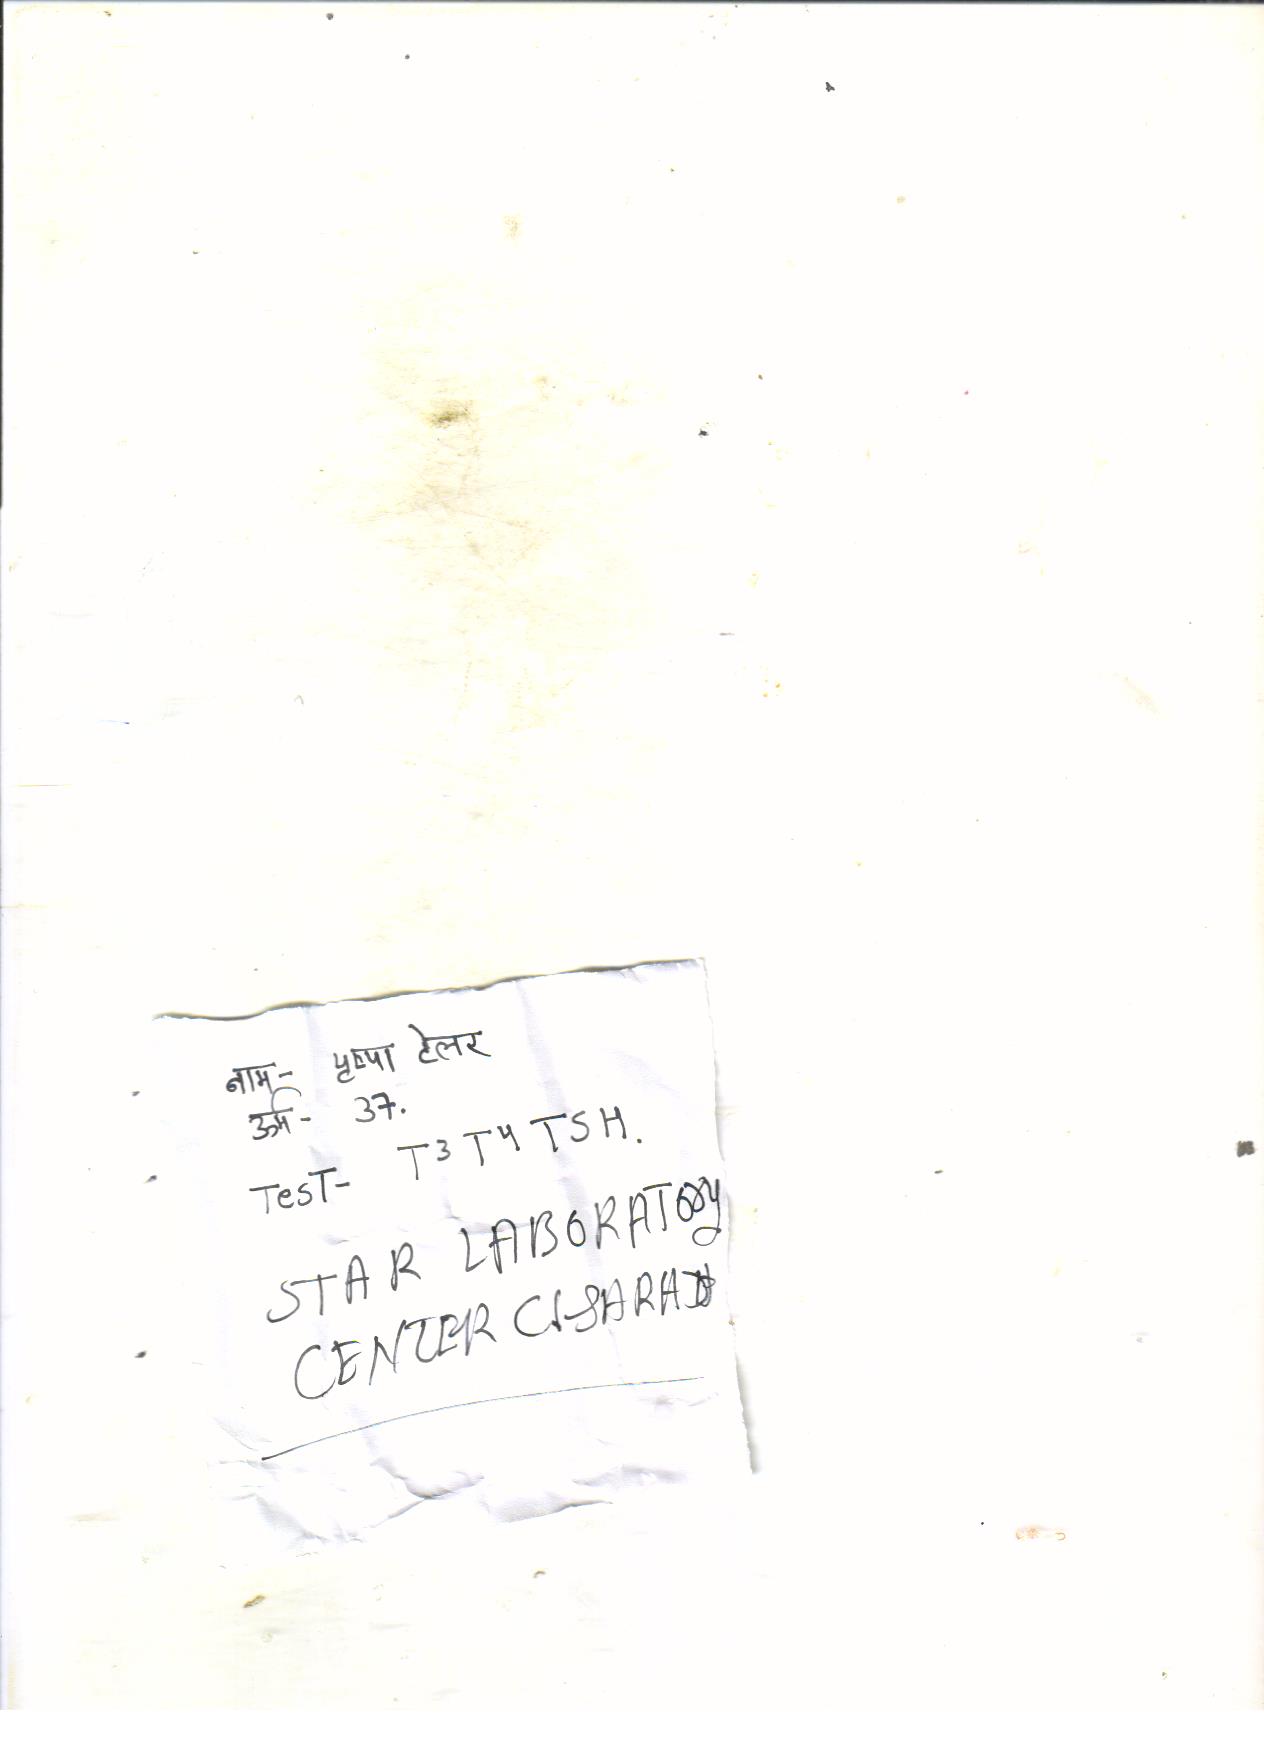 नाम- पुष्पा टेलर
उर्म- 37.
TesT- T3 T4 TSH.
STAR LABORATORY
CENTER